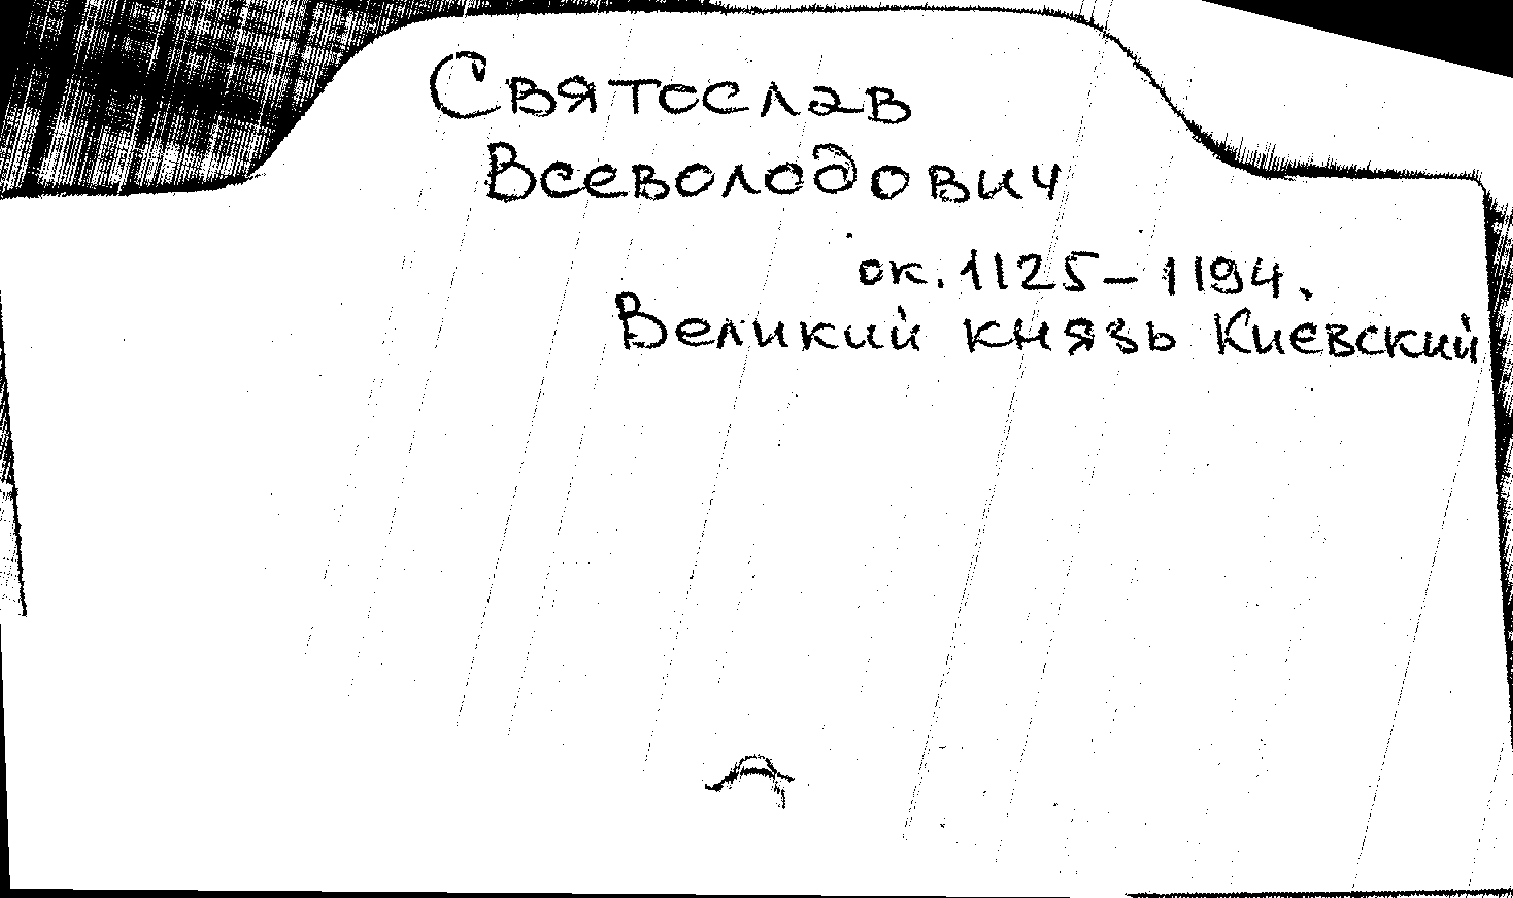 Святослав
Всеволодович
ок. 1125 – 1194.
Великий князь Киевский